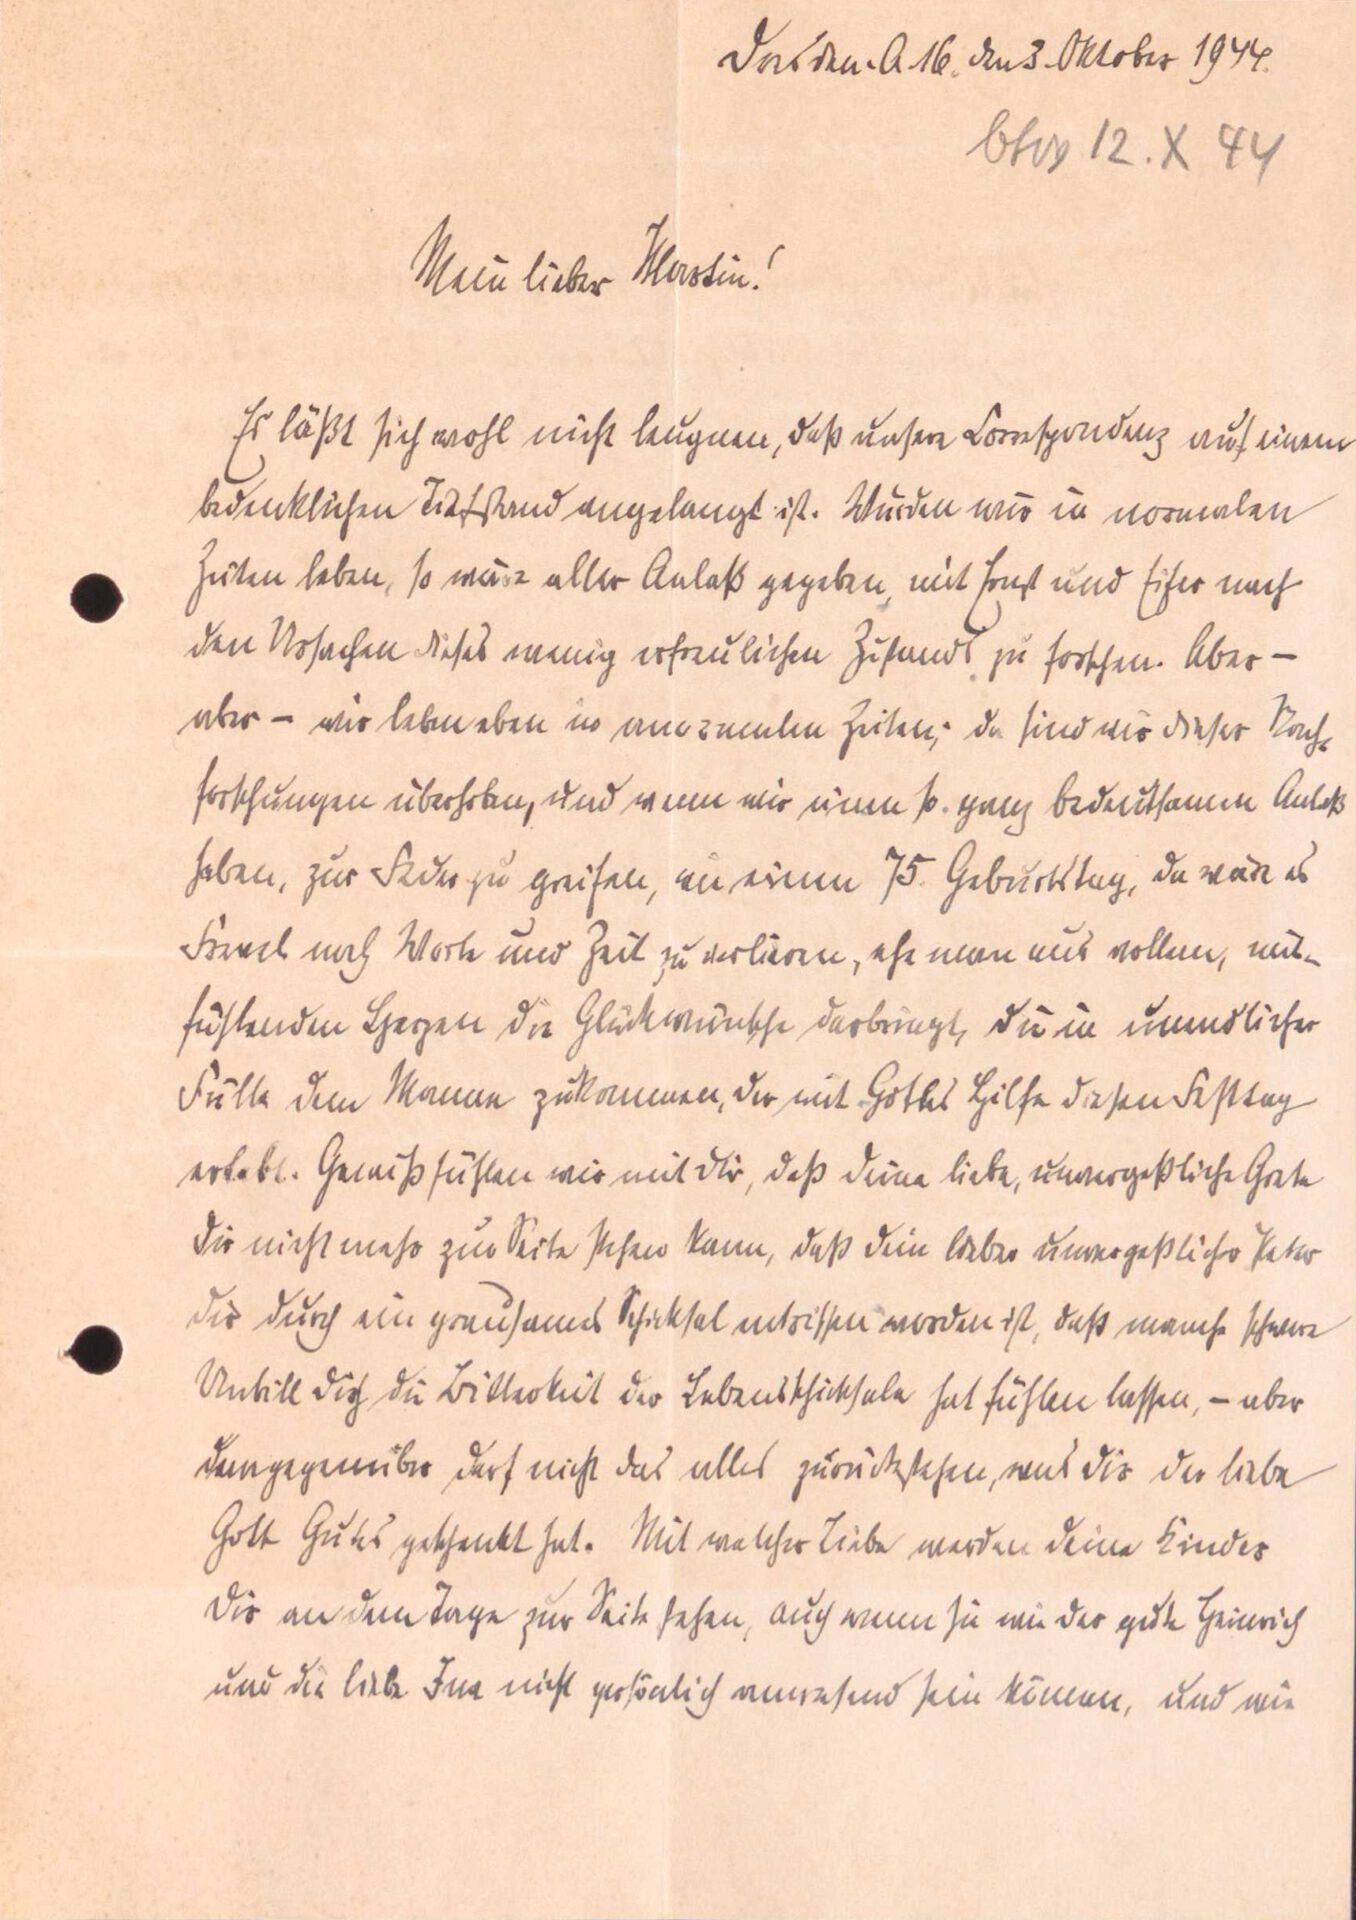 Dresden-A 16, den 3. Oktober 1944.
btw 12. X 44
Mein lieber Martin!
Es läßt sich wohl nicht leugnen, daß unsere Correspondenz auf einem
bedenklichen Tiefstand angelangt ist. Würden wir in normalen
Zeiten leben, so wäre aller Anlaß gegeben, mit Ernst und Eifer nach
den Ursachen dieses wenig erfreulichen Zustands zu forschen. Aber –
aber – wir leben eben in anormalen Zeiten; da sind wir dieser Nach-
forschungen überhoben, und wenn wir einen so ganz bedeutsamen Anlaß
haben, zur Feder zu greifen, wie einen 75. Geburtstag, da wäre es
Frevel noch Worte und Zeit zu verlieren, ehe man aus vollem, mit-
fühlenden Herzen die Glückwünsche darbringt, die in unendlicher
Fülle dem Manne zukommen, der mit Gottes Hilfe diesen Festtag
erlebt. Gewiß fühlen wir mit dir, daß deine liebe, unvergeßliche Grete
dir nicht mehr zur Seite stehen kann, daß dein lieber unvergeßlicher Peter
dir durch ein grausames Schicksal entrissen worden ist, daß manche schwere
Unbill dich die Bitterkeit der Lebensschicksale hat fühlen lassen, – aber
demgegenüber darf nicht das alles zurückstehen, was dir der liebe
Gott Gutes geschenkt hat. Mit welcher Liebe werden deine Kinder
dir an dem Tage zur Seite stehen, auch wenn sie wie der gute Heinrich
und die liebe Ina nicht persönlich anwesend sein können, und wie